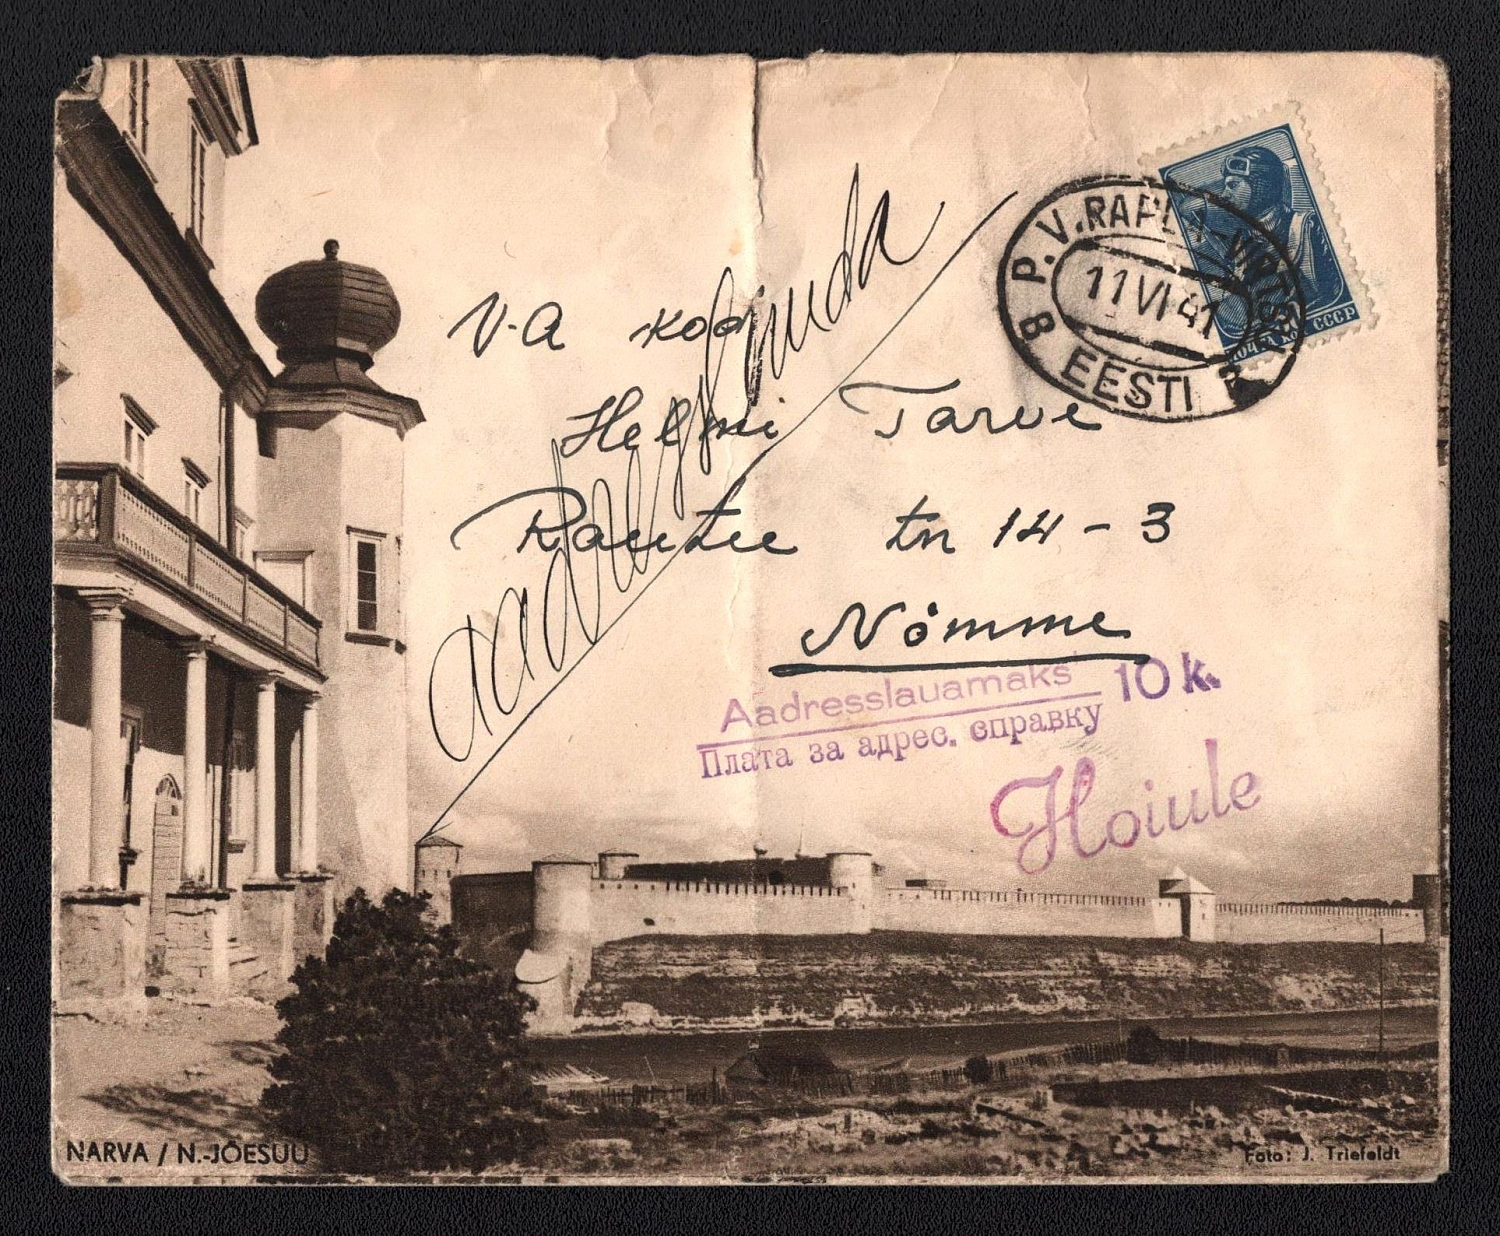 P.V. RAPLA-VIRTSU
11 VI 41
8 EESTI 8
ПОЧТА КОП СССР
V-A
Helmi Tarve
Rautee tn 14-3
Nõmme
Aadresslauamaks 10 k.
Плата за адрес. справку
Hoiule
NARVA / N.-JÕESUU
Foto: J. Triefeldt